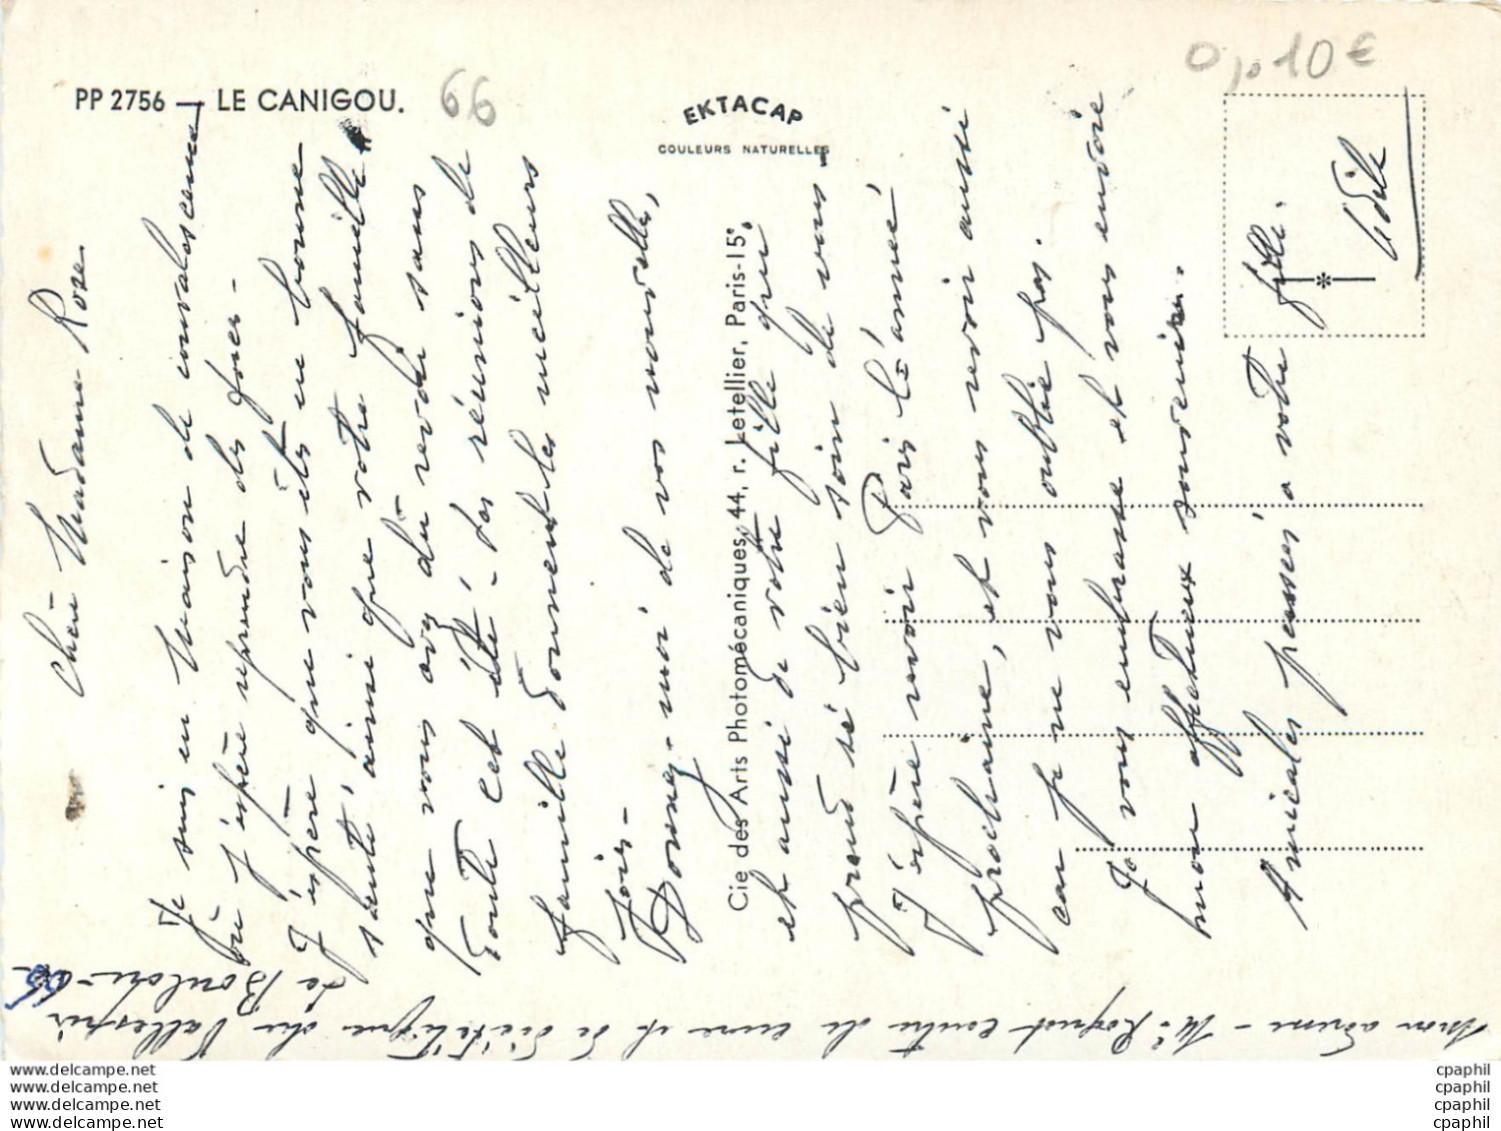 PP 2756 — LE CANIGOU.
66
EKTACAP
COULEURS NATURELLES
0,10 €
Cie des Arts Photomécaniques, 44, r. Letellier, Paris-15e
Chère Madame Rose
Je suis en Maison de convalescence
où j'espère reprendre des forces -
J'espère que vous êtes en bonne
santé, ainsi que votre famille
que vous avez dû revoir sans
toute cet été. Les réunions de
famille donnent les meilleurs
joies -
Donnez-moi de vos nouvelles,
et aussi de votre fille qui
prend si bien soin de vous -
J'espère revoir Paris l'année
prochaine, et vous revoir aussi
car je ne vous oublie pas.
Je vous embrasse et vous envoie
mon affectueux souvenir.
Amicales pensées à votre
fille.
Odile
Mon adresse - Centre de cure et de diététique du Vallespir
Le Boulou - 66
www.delcampe.net
www.delcampe.net
www.delcampe.net
www.delcampe.net
cpaphil
cpaphil
cpaphil
cpaphil